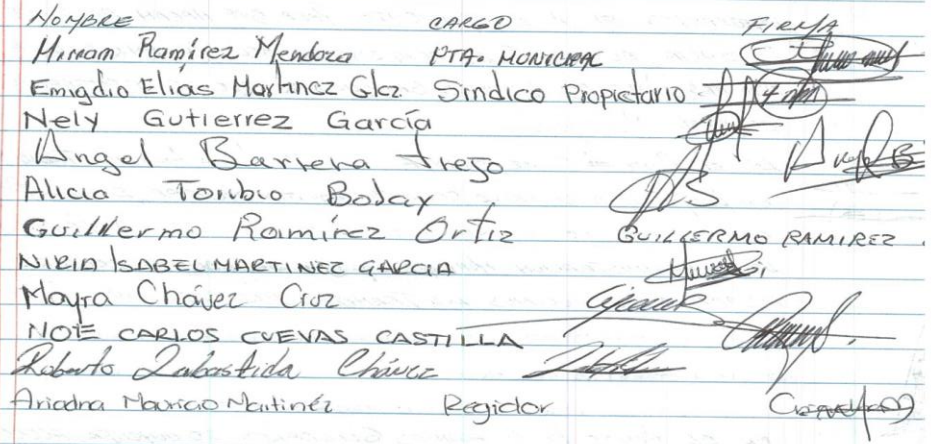 NOMBRE CARGO FIRMA
Mirnam Ramírez Mendoza PTA. MUNICIPAL
Emigdio Elias Martinez Glez Sindico Propietario
Nely Gutierrez García
Angel Barrera Trejo
Alicia Toribio Boday
Guillermo Ramírez Ortiz GUILLERMO RAMIREZ
NIRIA ISABEL MARTINEZ GARCIA
Mayra Chávez Cruz
NOE CARLOS CUEVAS CASTILLA
Roberto Labastida Chávez
Ariadna Mauricio Martinéz Regidor